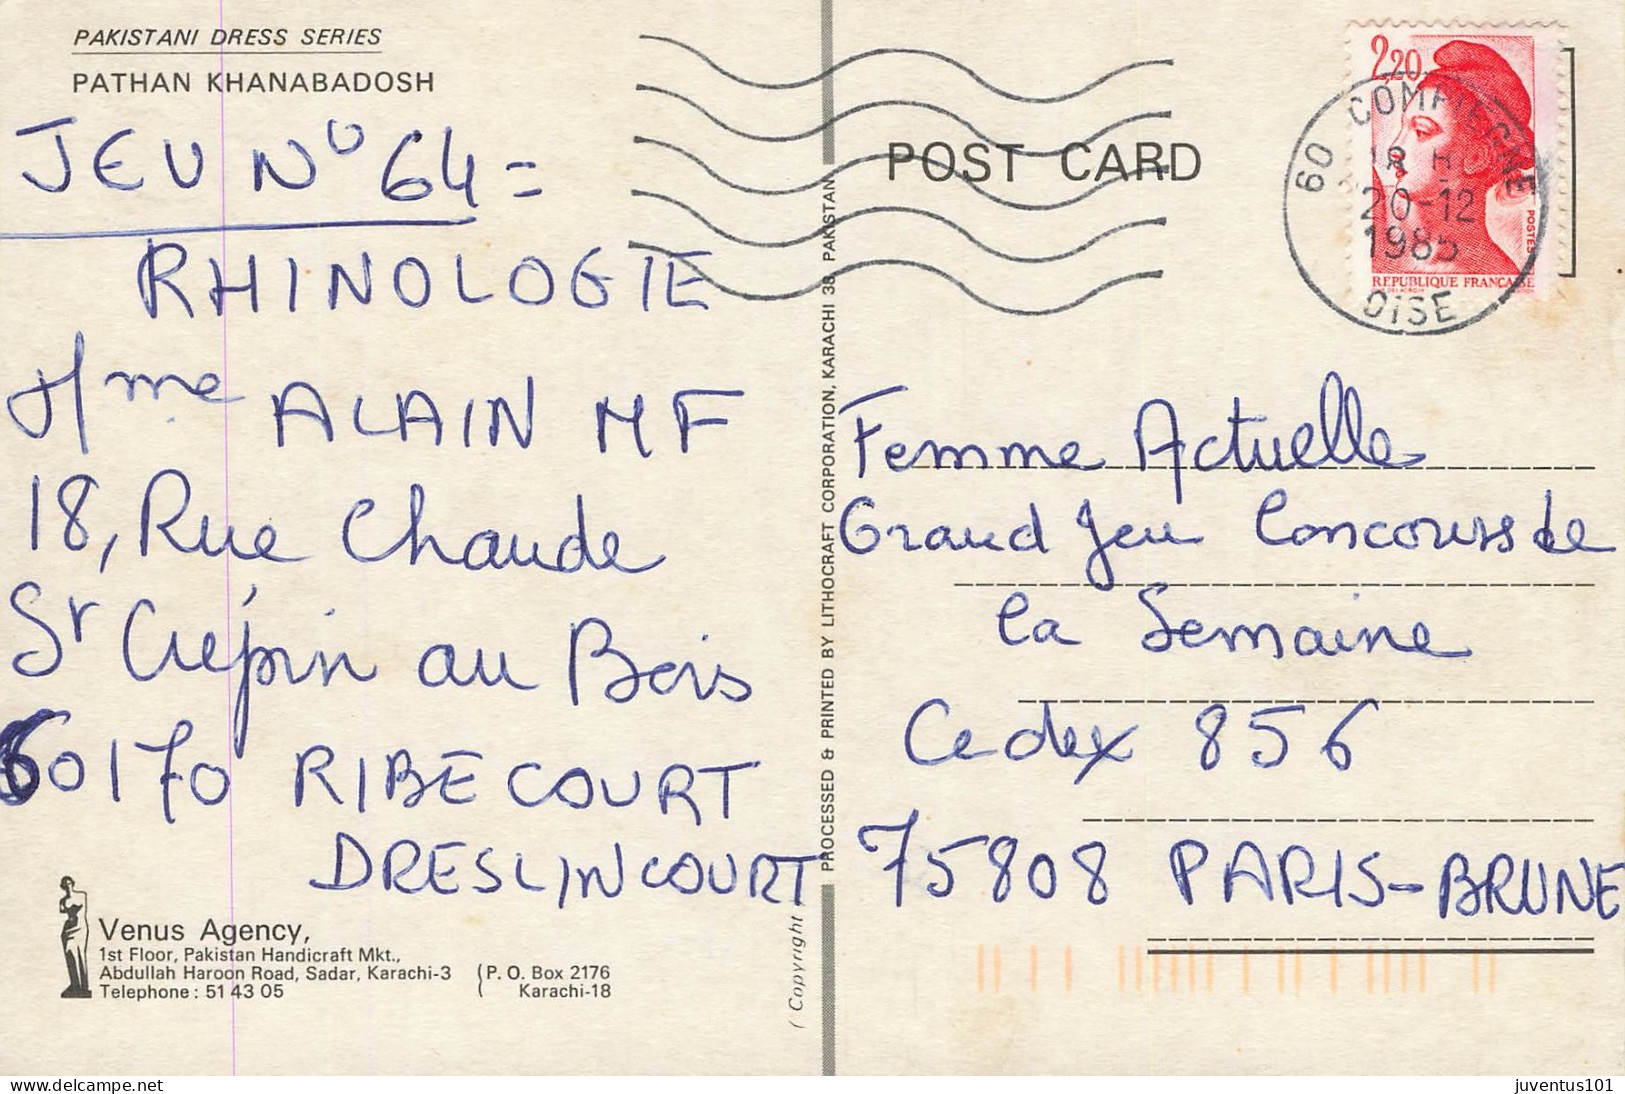 PAKISTANI DRESS SERIES
PATHAN KHANABADOSH
JEU N° 64 =
RHINOLOGIE
Mme ALAIN MF
18, Rue Chaude
St Crépin au Bois
60170 RIBECOURT
DRESLINCOURT
Venus Agency,
1st Floor, Pakistan Handicraft Mkt.,
Abdullah Haroon Road, Sadar, Karachi-3
Telephone : 51 43 05
(P. O. Box 2176
( Karachi-18
PROCESSED & PRINTED BY LITHOCRAFT CORPORATION, KARACHI 38, PAKISTAN
( Copyright
POST CARD
2,20
POSTES
REPUBLIQUE FRANÇAISE
60 COMPIEGNE
18 H
20-12
1985
OISE
Femme Actuelle
Grand Jeu Concours de
la Semaine
Cedex 856
75808 PARIS-BRUNE
juventus101